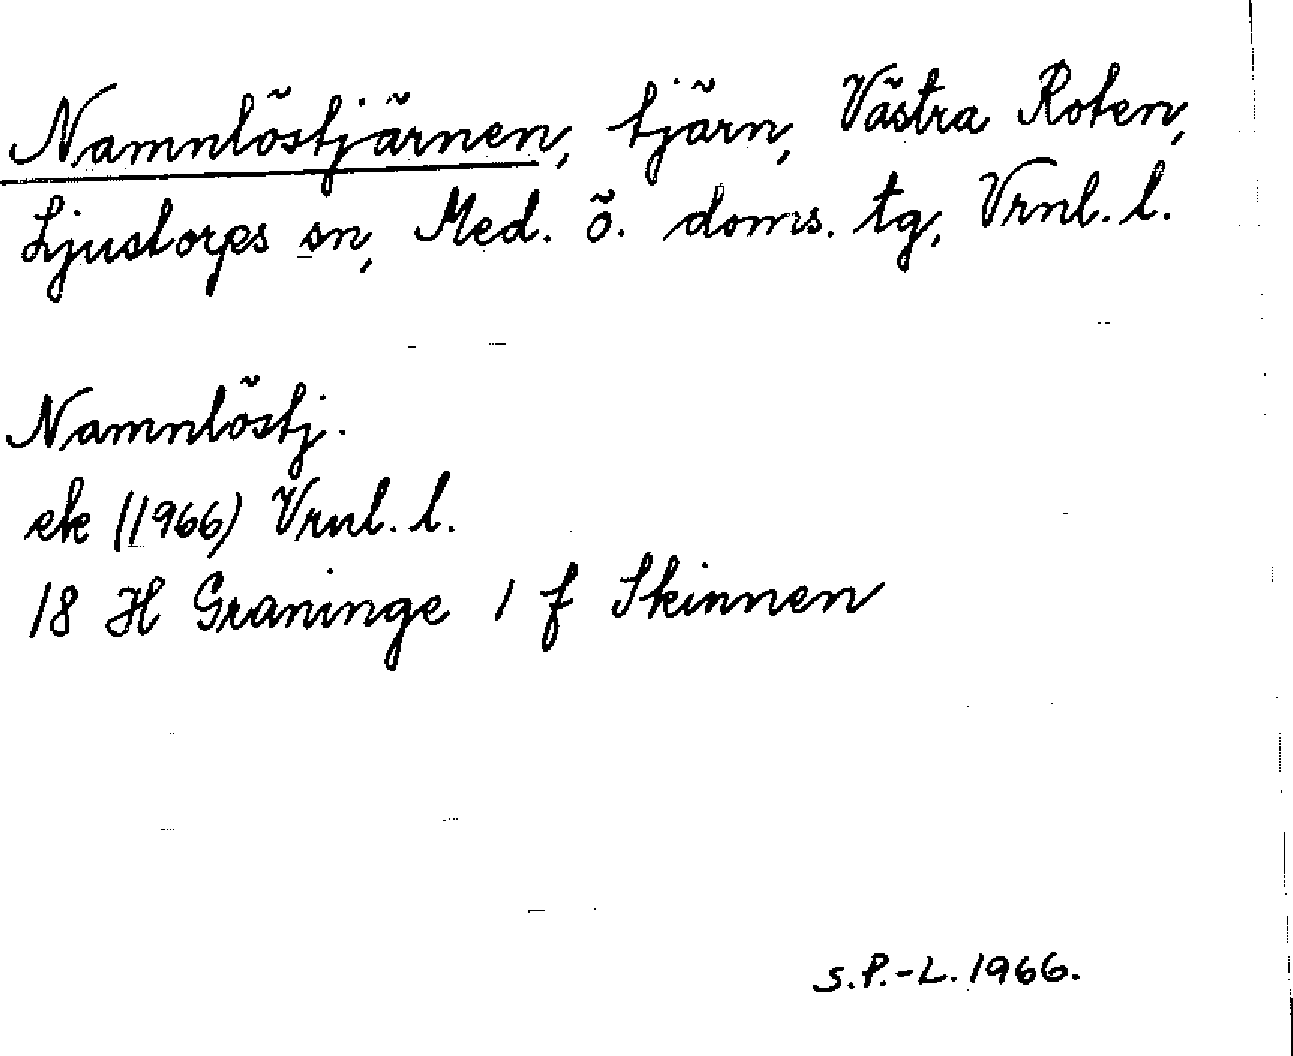 Namnlöstjärnen, tjärn, Västra Roten,
Ljustorps sn, Med. ö. doms. tg, Vrnl. l.
Namnlöstj.
ek (1966) Vrnl. l.
18 H Graninge 1 f Skinnen
S.P.-L. 1966.